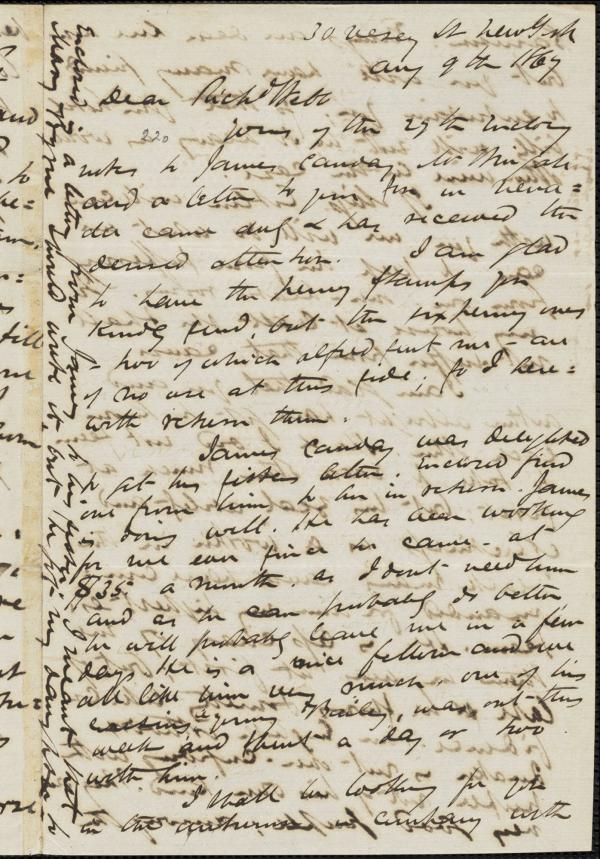 30 Vesey St New York
Aug 9th 1867
Dear Richd Webb
220
Yours of the 29th Enclosg
notes to James Canday
and a letter to your Son in neva=
da came Aug & has received the
desired attention. I am glad
to have the penny stamps you
kindly send, but the sixpenny ones
- two of which Alfred sent me - are
of no use at this side, so I here=
with return them.
James Canday was delighted
to get his sisters letter. Enclosed find
one from him to her in return. James
is doing well. He has been working
for me ever since he came - at
$35 a month as I don't need him
and as he can probably do better
he will probably leave me in a few
days He is a nice fellow and we
all like him very much. One of his
cousins, young Baily, was out this
week and spent a day or two
with him.
I shall be looking for you
in the autumn in company with
Enclosed is a letter from James to his sister. I meant that
Mary or me should write it, but he got my daughter to